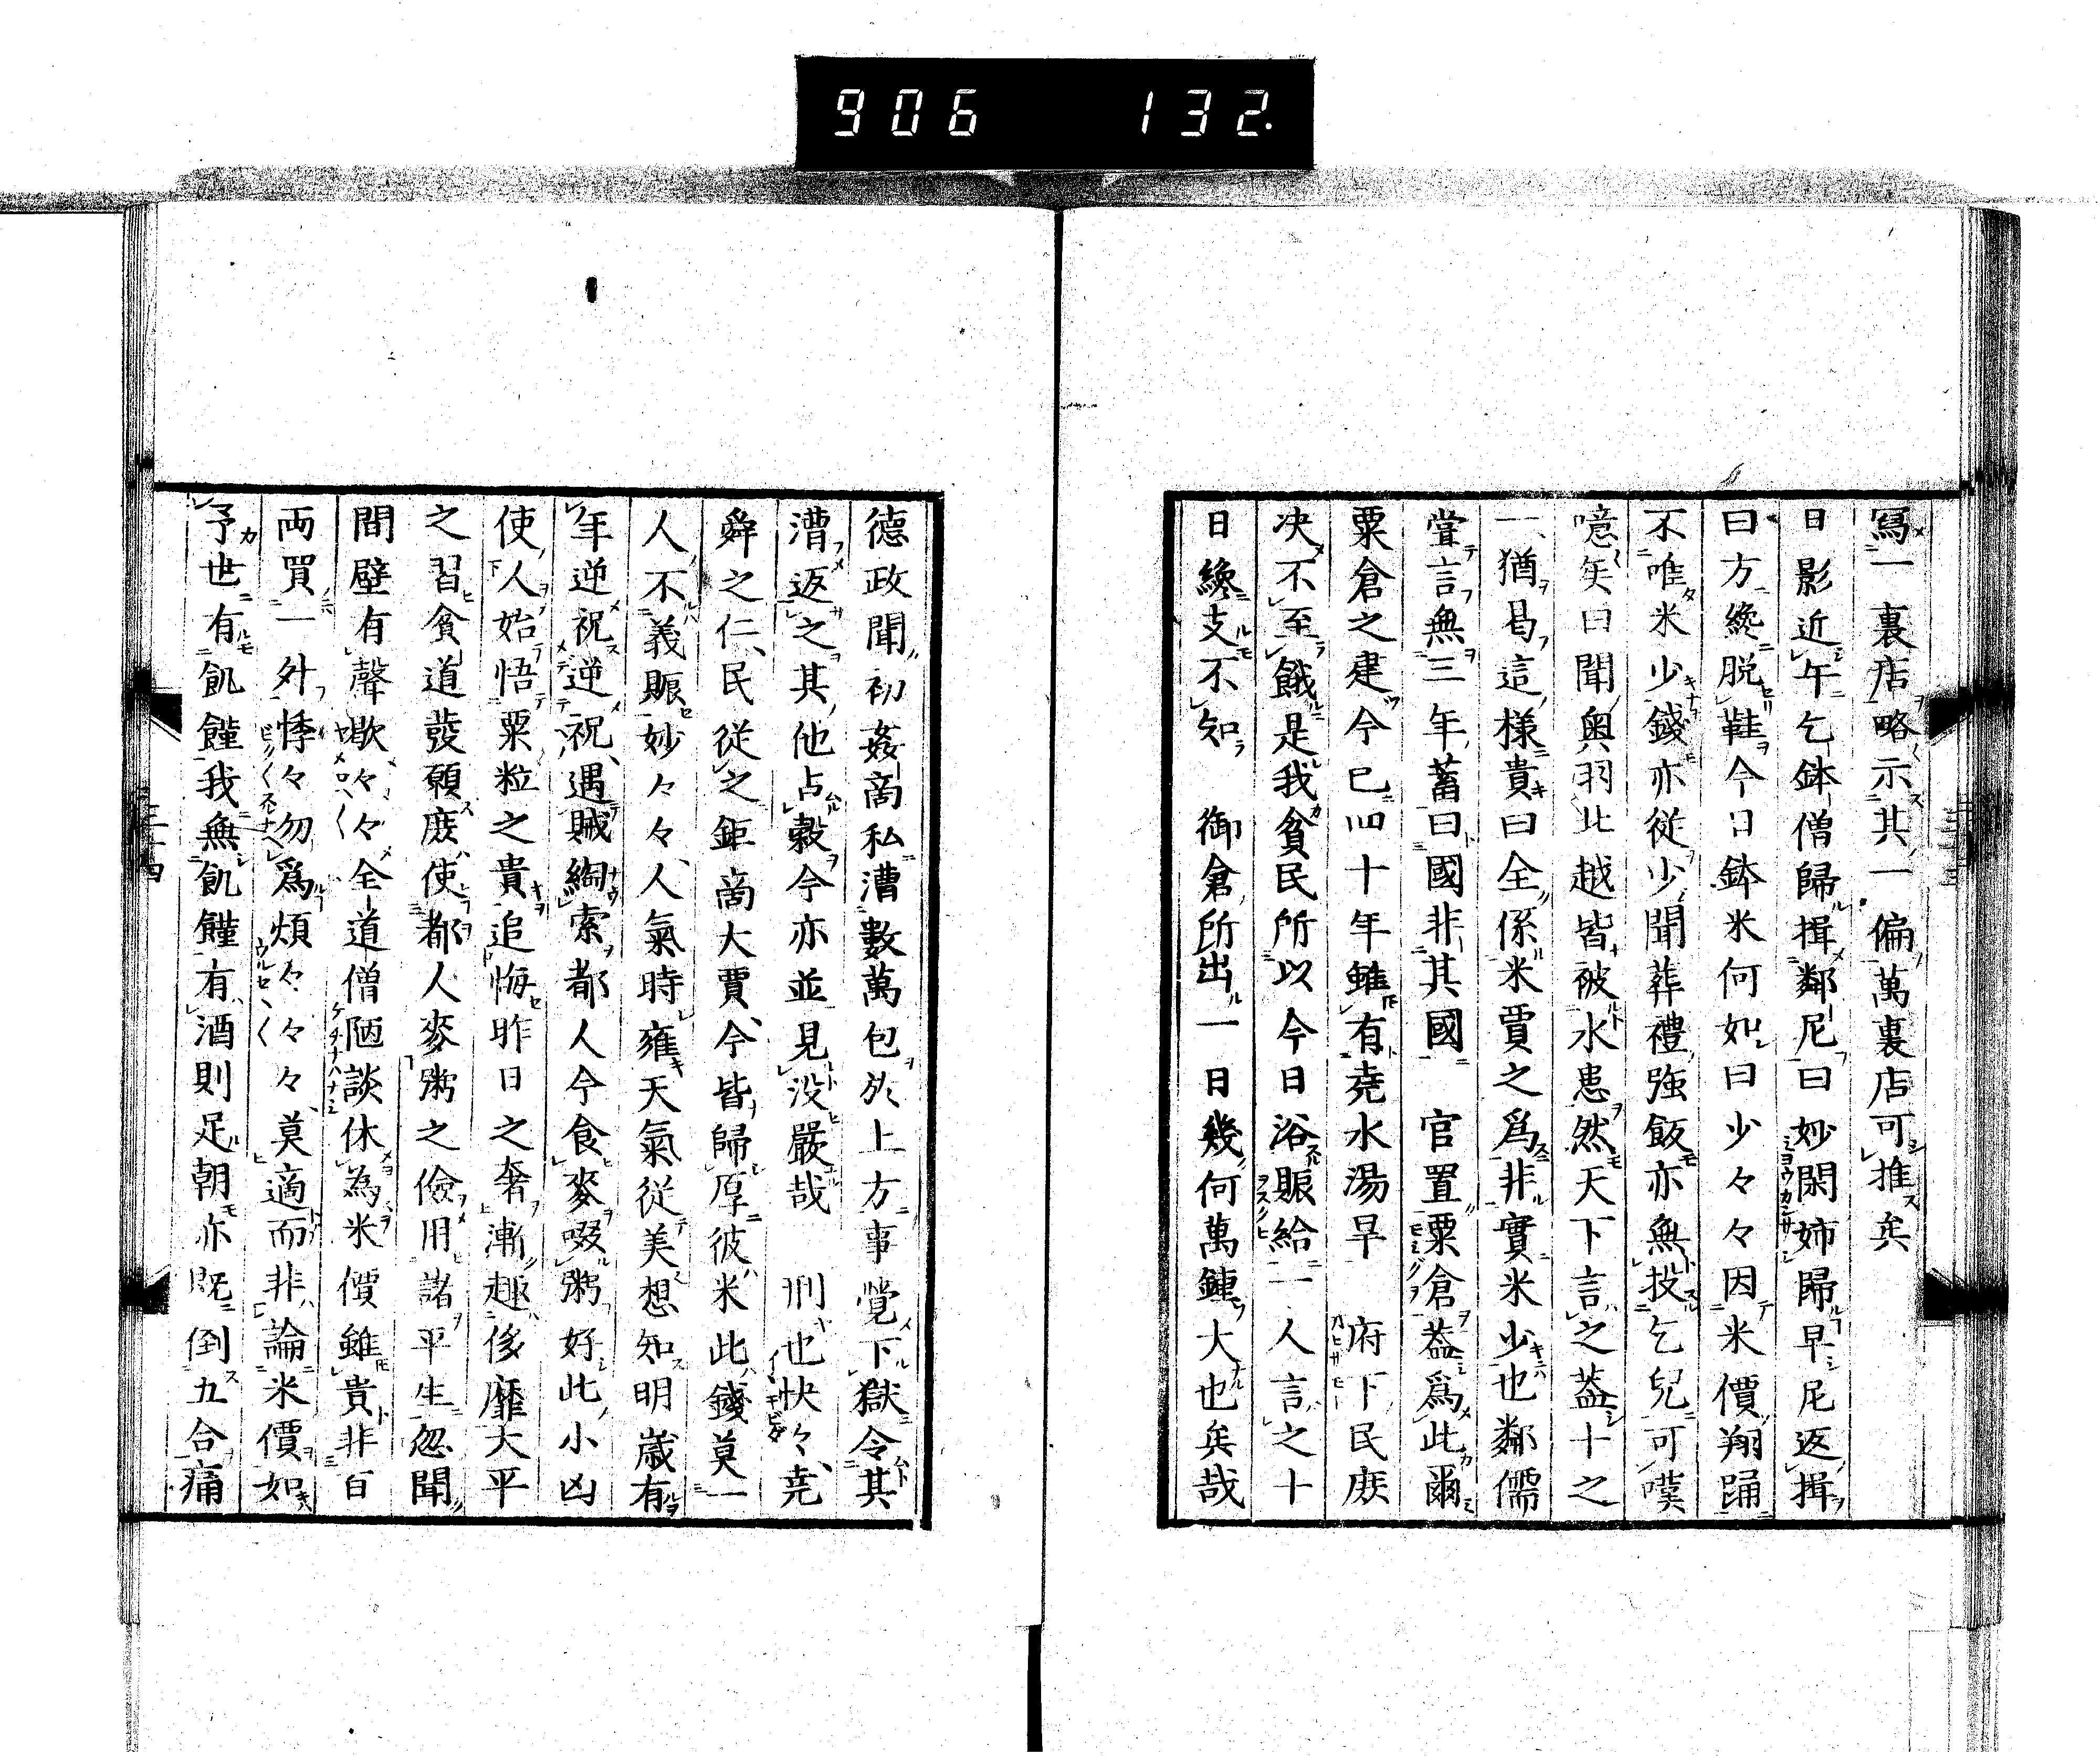 906 132.
寫一裏店略示其一偏萬裏店可推矣
日影近午乞鉢僧歸揖鄰尼曰妙閑姉歸早尼返揖
曰方纔脱鞋今日鉢米何如曰少々々因米價翔踊
不唯米少錢亦從少聞葬禮強飯亦無投乞兒可嘆
噫矣曰聞奥羽北越皆被水患然天下言之葢十之
一猶曷這樣貴曰全係米賈之爲非實米少也鄰儒
嘗言無三年蓄曰國非其國官置粟倉葢爲此爾
粟倉之建今已四十年雖有堯水湯旱府下民庻
决不至餓是我貧民所以今日浴賑給一人言之十
日纔支不知御倉所出一日幾何萬鍾大也矣哉
德政聞初姦啇私漕數萬包於上方事覺下獄令其
漕返之其他占穀令亦並見没嚴哉刑也快々堯
舜之仁民從之鉅啇大賈今皆歸厚彼米此錢莫一
人不義賑妙々々人氣時雍天氣從美想知明歳有
年逆祝逆祝遇賊綯索都人今食麥啜粥好此小凶
使人始悟粟粒之貴追悔昨日之奢漸趣侈靡大平
之習貪道發願庻使都人麥粥之儉用諸平生忽聞
間壁有聲歇々々全道僧陋談休為米價雖貴非百
兩買一升悸々勿爲煩々々々莫適而非論米價如
予世有飢饉我無飢饉有酒則足朝亦既倒五合痛
三十四